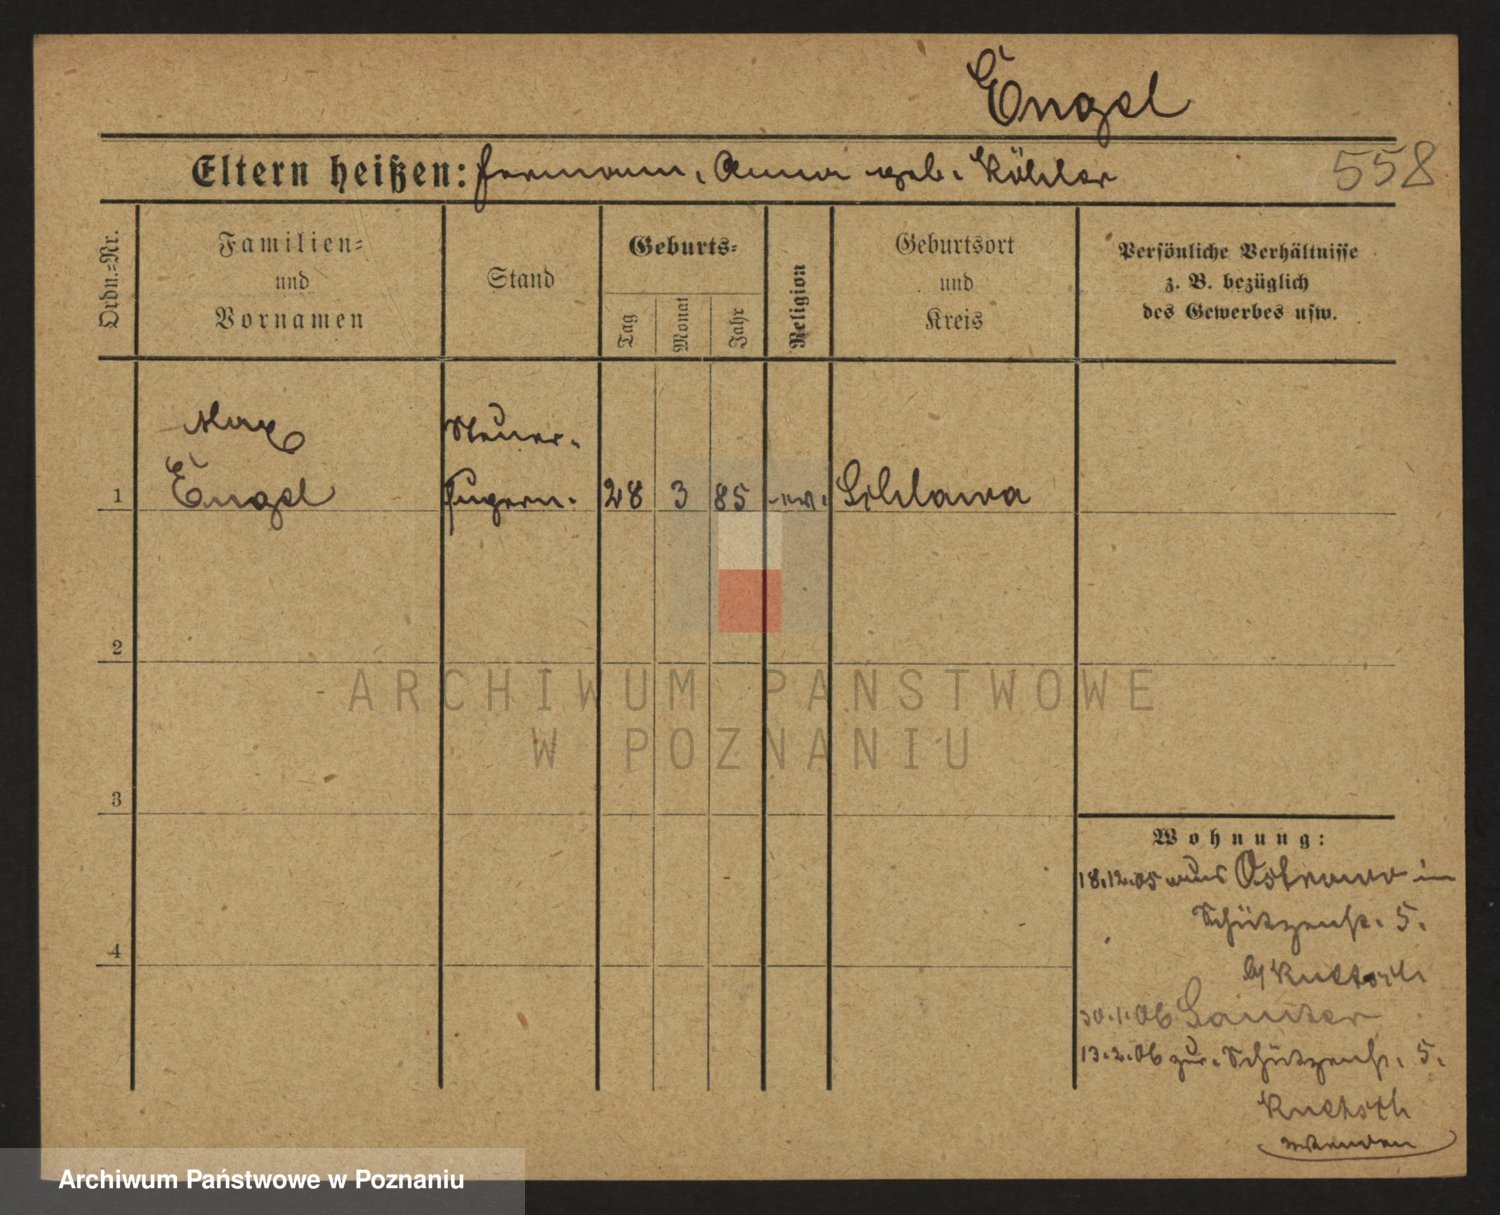 Engel
Eltern heißen: Hermann, Anna geb. Köhler
558
Ordn.=Nr.
Familien=
und
Vornamen
Stand
Geburts=
Tag
Monat
Jahr
Religion
Geburtsort
und
Kreis
Persönliche Verhältnisse
z. B. bezüglich
des Gewerbes usw.
Max
Steuer-
1 Engel Supern. 28 3 85 ev. Schlawa
2
ARCHIWUM PAŃSTWOWE
W POZNANIU
3
Wohnung:
18.12.05 aus Ostrowo in
Schützenstr. 5.
4
b/
30.1.06 Samter
13.2.06 zur. Schützenstr. 5.
Archiwum Państwowe w Poznaniu